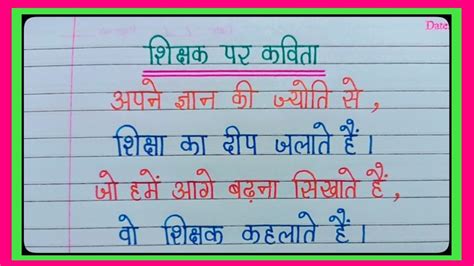 Date
शिक्षक पर कविता
अपने ज्ञान की ज्योति से ,
शिक्षा का दीप जलाते हैं ।
जो हमें आगे बढ़ना सिखाते हैं ,
वो शिक्षक कहलाते हैं ।